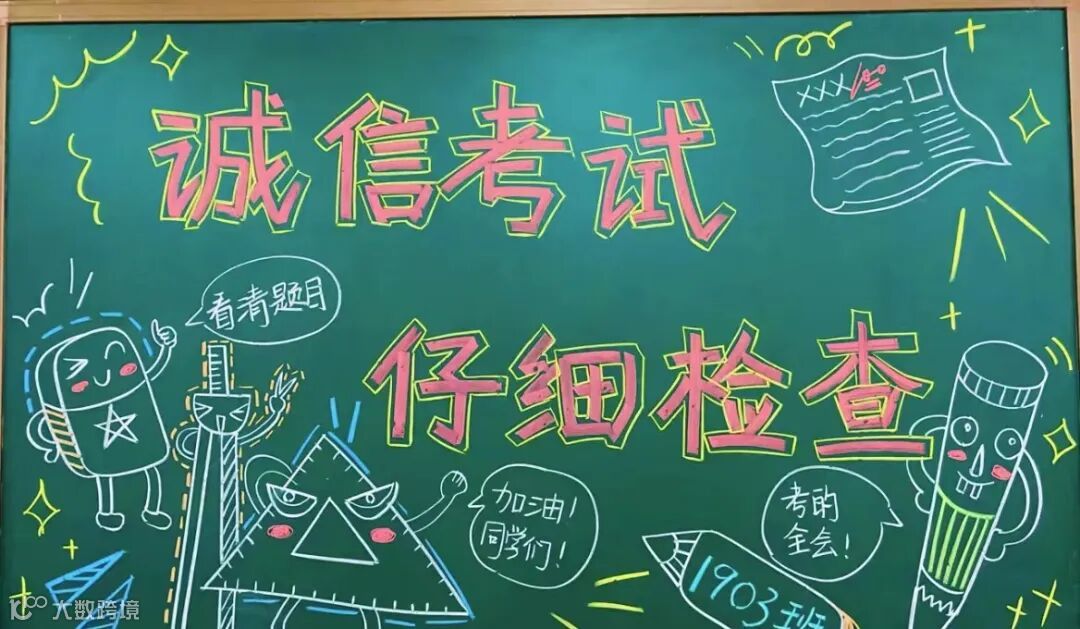 诚信考试
XXX
看清题目
仔细检查
加油!
同学们!
考的
全会!
1903班
大数跨境